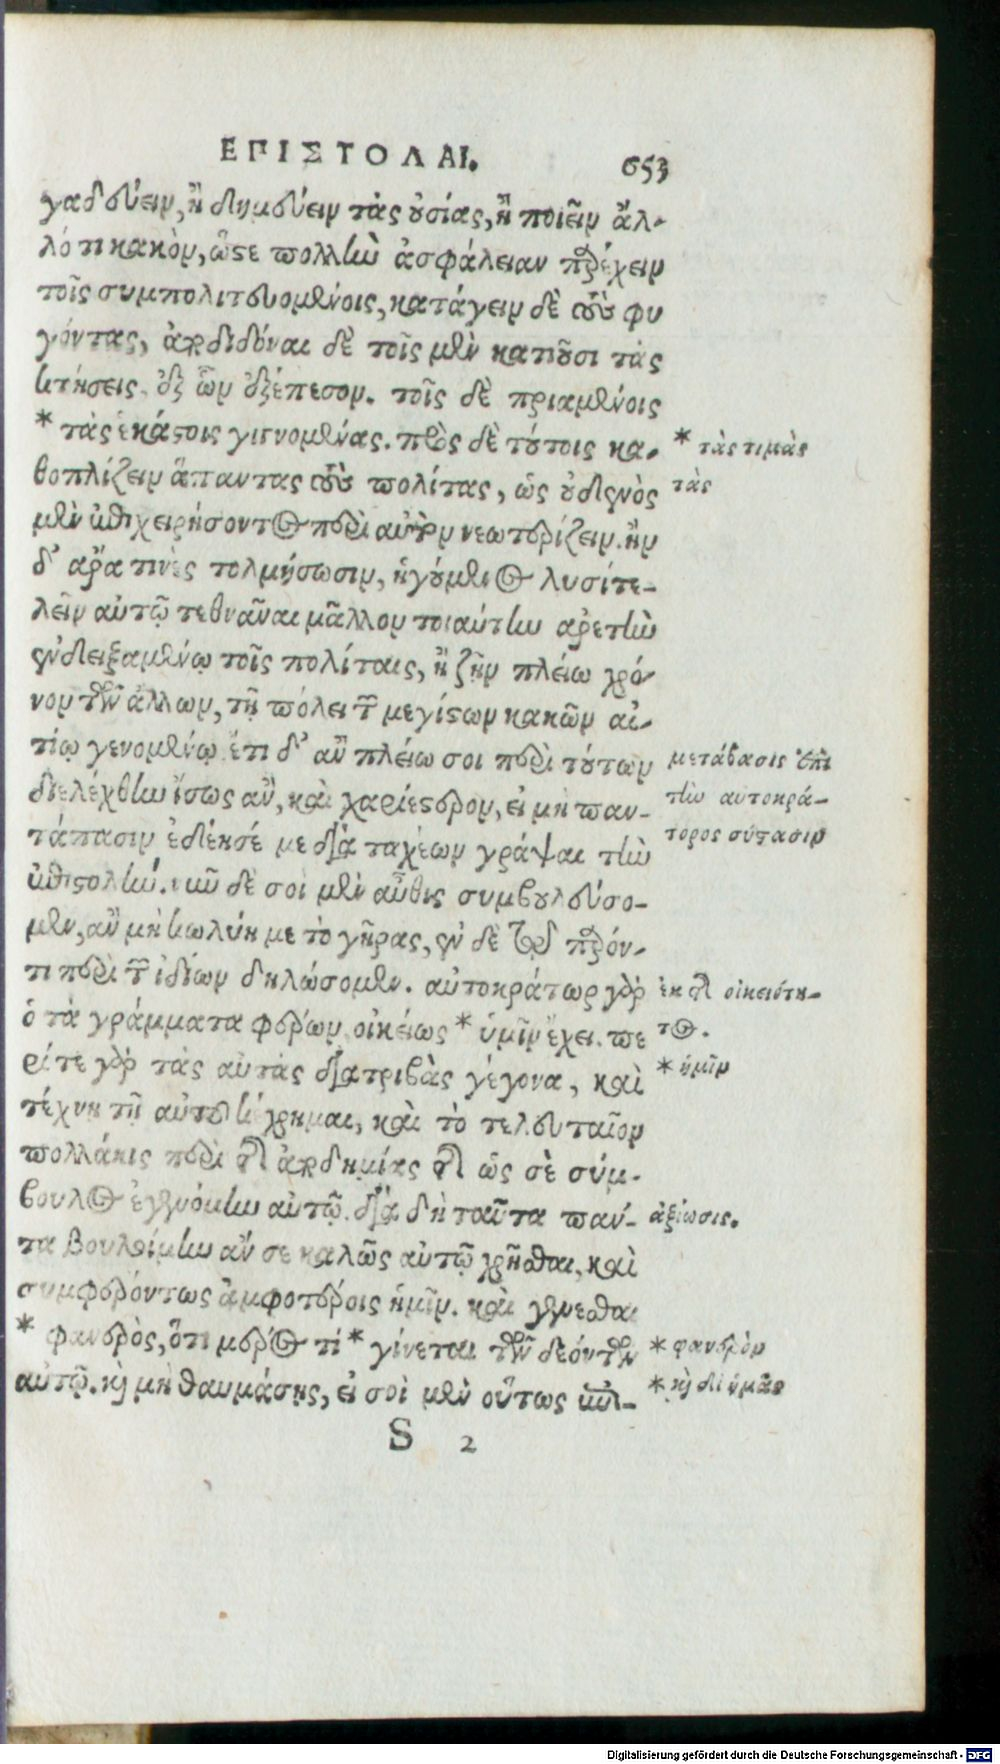 ΕΠΙΣΤΟΛΑΙ. 653
γαδεύειν, ἢ δημεύειν τὰς οὐσίας, ἢ ποιεῖν ἄλ-
λό τι κακὸν, ὥστε πολλὴν ἀσφάλειαν παρέχειν
τοῖς συμπολιτευομένοις, κατάγειν δὲ τοὺς φυ
γόντας, ἀποδιδόναι δὲ τοῖς μὲν κατιοῦσι τὰς
κτήσεις, ἐξ ὧν ἐξέπεσον. τοῖς δὲ πριαμένοις
* τὰς ἑκάστοις γιγνομένας. πρὸς δὲ τούτοις κα-
θοπλίζειν ἅπαντας τοὺς πολίτας, ὡς οὐδενὸς
μὲν ἐπιχειρήσοντος περὶ αὐτὴν νεωτερίζειν. ἢν
δ' ἄρα τινὲς τολμήσωσιν, ἡγούμενος λυσιτε-
λεῖν αὐτῷ τεθνᾶναι μᾶλλον τοιαύτην ἀρετὴν
ἐνδειξαμένῳ τοῖς πολίταις, ἢ ζῆν πλείω χρό-
νον τῶν ἄλλων, τῇ πόλει τῶν μεγίστων κακῶν αἰ-
τίῳ γενομένῳ. ἔτι δ' ἂν πλείω σοι περὶ τούτων
διελέχθην ἴσως ἂν, καὶ χαριέστερον, εἰ μὴ παν-
τάπασιν ἐδέησέ με διὰ ταχέων γράψαι τὴν
ἐπιστολήν. νῦν δὲ σοὶ μὲν αὖθις συμβουλεύσο-
μεν, ἂν μὴ κωλύῃ με τὸ γῆρας, ἐν δὲ τῷ παρόν-
τι περὶ τῶν ἰδίων δηλώσομεν. αὐτοκράτωρ γὰρ
ὁ τὰ γράμματα φέρων οἰκείως * ὑμῖν ἔχει. πε
ρί τε γὰρ τὰς αὐτὰς διατριβὰς γέγονα, καὶ
τέχνῃ τῇ αὐτοῦ κέχρημαι, καὶ τὸ τελευταῖον
πολλάκις περὶ τῆς ἀποδημίας τῆς ὡς σὲ σύμ-
βουλος ἐγενόμην αὐτῷ. διὰ δὴ ταῦτα πάν-
τα βουλοίμην ἄν σε καλῶς αὐτῷ χρῆσθαι, καὶ
συμφερόντως ἀμφοτέροις ἡμῖν. καὶ γενέσθαι
* φανερὸς, ὅτι μέρος τί * γίνεται τῶν δεόντων
αὐτῷ. καὶ μὴ θαυμάσῃς, εἰ σοὶ μὲν οὕτως ἐπι-
S 2
* τὰς τιμὰς
τὰς
μετάβασις ἐπὶ
τὴν αὐτοκρά-
τορος σύστασιν
ἐκ τῆς οἰκειότη-
τος.
* ἡμῖν
ἀξίωσις.
* φανερὸν
* καὶ δι' ἡμᾶς
Digitalisierung gefördert durch die Deutsche Forschungsgemeinschaft - DFG